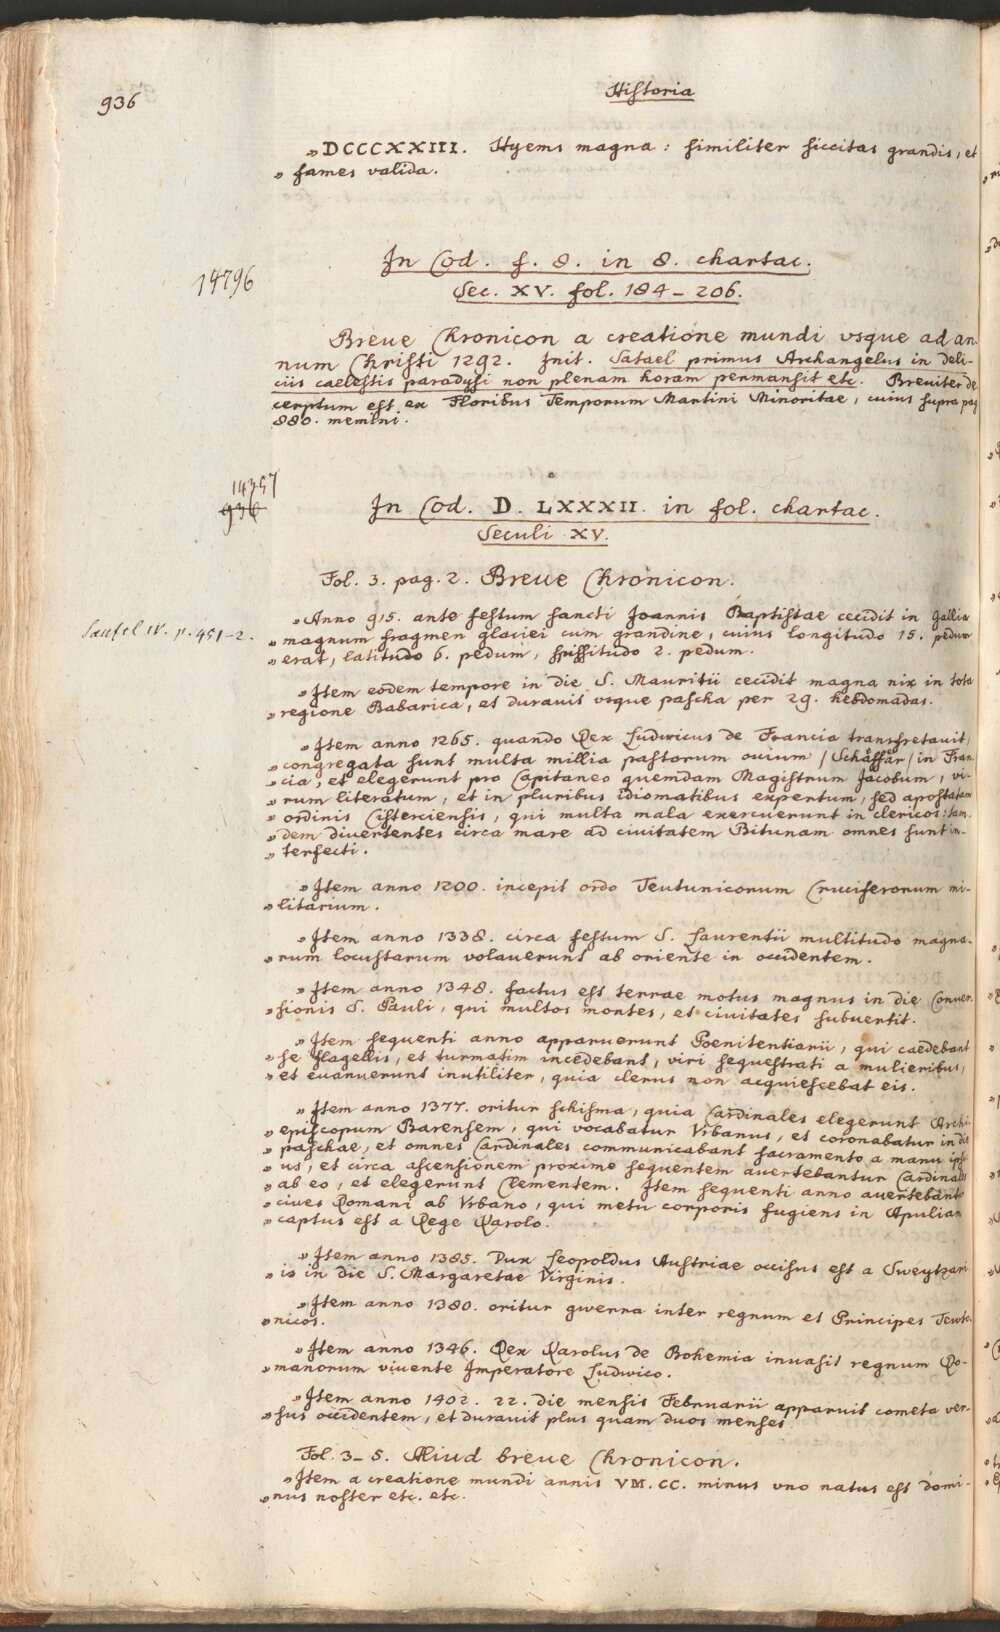 936
Historia
„DCCCXXIII. Hyems magna: similiter siccitas grandis, et
„fames valida.
14796
In Cod. f. 8. in 8. chartac.
Sec. XV. fol. 184–206.
Breue Chronicon a creatione mundi vsque ad an-
num Christi 1292. Init. Satael primus Archangelus in deli-
ciis caelestis paradysi non plenam horam permansit etc. Breviter de
cerptum est ex Floribus Temporum Martini Minoritae, cuius supra pag
880. memini.
14357
936
In Cod. D. LXXXII. in fol. chartac.
Seculi XV.
Fol. 3. pag. 2. Breue Chronicon.
p. 451–2.
„Anno 915. ante festum sancti Joannis Baptistae cecidit in Gallia
„magnum fragmen glaciei cum grandine, cuius longitudo 15. pedum
„erat, latitudo 6. pedum, spissitudo 2. pedum.
„Item eodem tempore in die S. Mauritii cecidit magna nix in tota
„regione Babarica, et durauit vsque pascha per 29. hebdomadas.
„Item anno 1265. quando Rex Ludwicus de Francia transfretauit,
„congregata sunt multa millia pastorum ouium /Schäffär/ in Fran
„cia, et elegerunt pro Capitaneo quemdam Magistrum Jacobum, vi-
„rum literatum, et in pluribus idiomatibus expertum, sed apostatam
„ordinis Cisterciensis, qui multa mala exercuerunt in clericos: tan.
„dem divertentes circa mare ad ciuitatem Bitunam omnes sunt in-
„terfecti.
„Item anno 1200. incepit ordo Teutunicorum Cruciferorum mi-
„litarium.
„Item anno 1338. circa festum S. Laurentii multitudo magna-
„rum locustarum volauerunt ab oriente in occidentem.
„Item anno 1348. factus est terrae motus magnus in die Conuer
„sionis S. Pauli, qui multos montes, et ciuitates subuertit.
„Item sequenti anno apparuerunt Poenitentiarii, qui caedebant
„se flagellis, et turmatim incedebant, viri sequestrati a mulieribus,
„et euanuerunt inutiliter, quia clerus non acquiescebat eis.
„Item anno 1377. oritur schisma, quia Cardinales elegerunt Archi-
„episcopum Barensem, qui vocabatur Vrbanus, et coronabatur in die
„paschae, et omnes Cardinales communicabant sacramento a manu ipsi
„us, et circa ascensionem proxime sequentem auertebantur Cardinales
„ab eo, et elegerunt Clementem. Item sequenti anno auertebant
„ciues Romani ab Vrbano, qui metu corporis fugiens in Apuliam
„captus est a Rege Karolo.
„Item anno 1385. Dux Leopoldus Austriae occisus est a Sweytzari
„is in die S. Margaretae Virginis.
„Item anno 1380. oritur gwerra inter regnum et Principes Teuto
„nicos.
„Item anno 1346. Rex Karolus de Bohemia inuasit regnum Ro-
„manorum viuente Imperatore Ludwico.
„Item anno 1402. 22. die mensis Februarii apparuit cometa ver-
„sus occidentem, et durauit plus quam duos menses.
Fol. 3–5. Aliud breue Chronicon.
„Item a creatione mundi annis VM.CC. minus vno natus est domi-
„nus noster etc. etc.